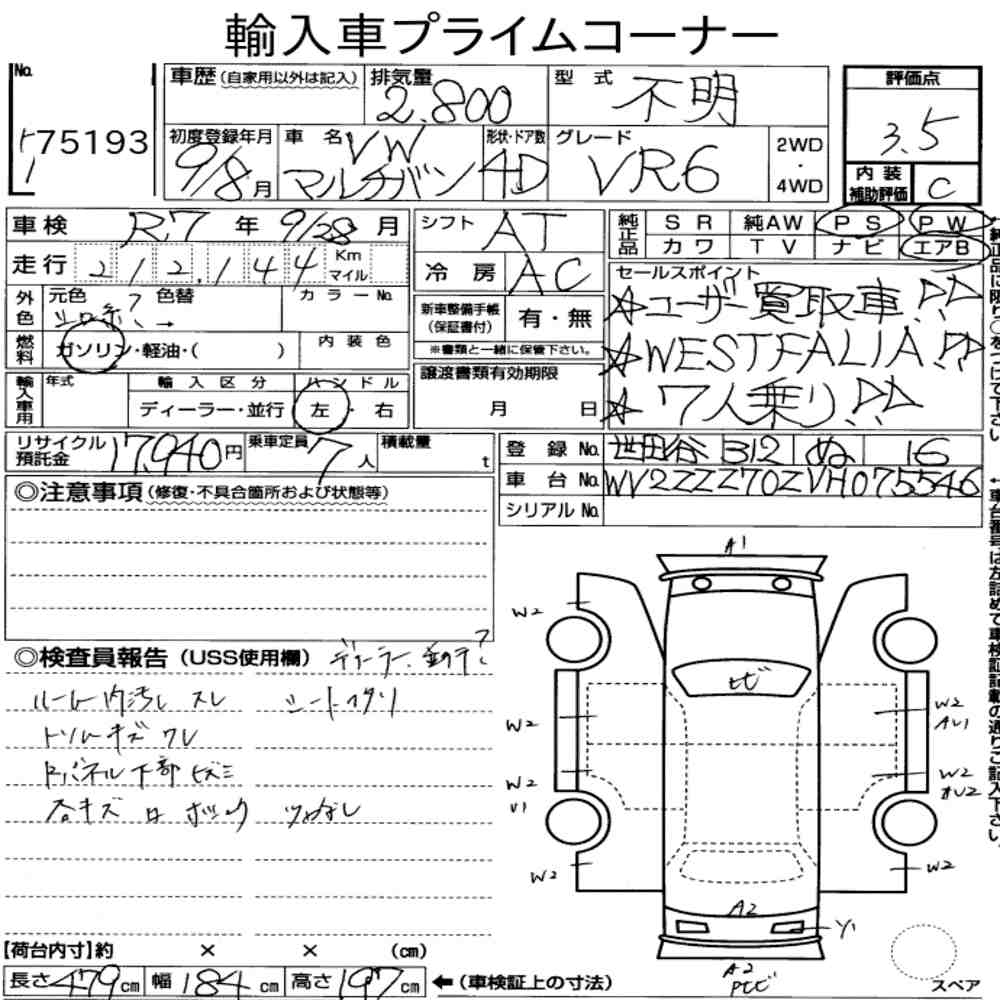 輸入車プライムコーナー
No. 75193
車歴(自家用以外は記入) 排気量 2,800 型式 不明
評価点 3.5
初度登録年月 9/8月 車名 VW マルチバン 形状・ドア数 4D グレード VR6 2WD・4WD
内装補助評価 C
車検 R.7年 9/28月 シフト AT
純正品 SR 純AW PS PW
カワ TV ナビ エアB
走行 212,144 Km マイル 冷房 AC
セールスポイント
☆ユーザー買取車!!
☆WESTFALIA!!
☆7人乗り!!
外色 元色 シロ 色替 → カラーNo.
燃料 ガソリン・軽油・( ) 内装色
新車整備手帳(保証書付) 有・無
※書類と一緒に保管下さい。
輸入車用 年式 輸入区分 ディーラー・並行 ハンドル 左・右
譲渡書類有効期限 月 日
リサイクル預託金 17,940円 乗車定員 7人 積載量 t
登録No. 世田谷 312 ぬ 16
車台No. WV2ZZZ70ZVH075546
シリアルNo.
◎注意事項(修復・不具合箇所および状態等)
◎検査員報告(USS使用欄) ディーラー
ルーム内汚レ スレ シート
トリムキズ ワレ
下部
各キズ
A1
W2
W2
W2
V1
W2
W2
W2
W2
A2
Y1
A2
【荷台内寸】約 × × (cm)
長さ 479cm 幅 184cm 高さ 197cm ←(車検証上の寸法)
スペア
↑純正品に限り○をつけて下さい。
↑車台番号は左詰めで車検証記載の通りご記入下さい。